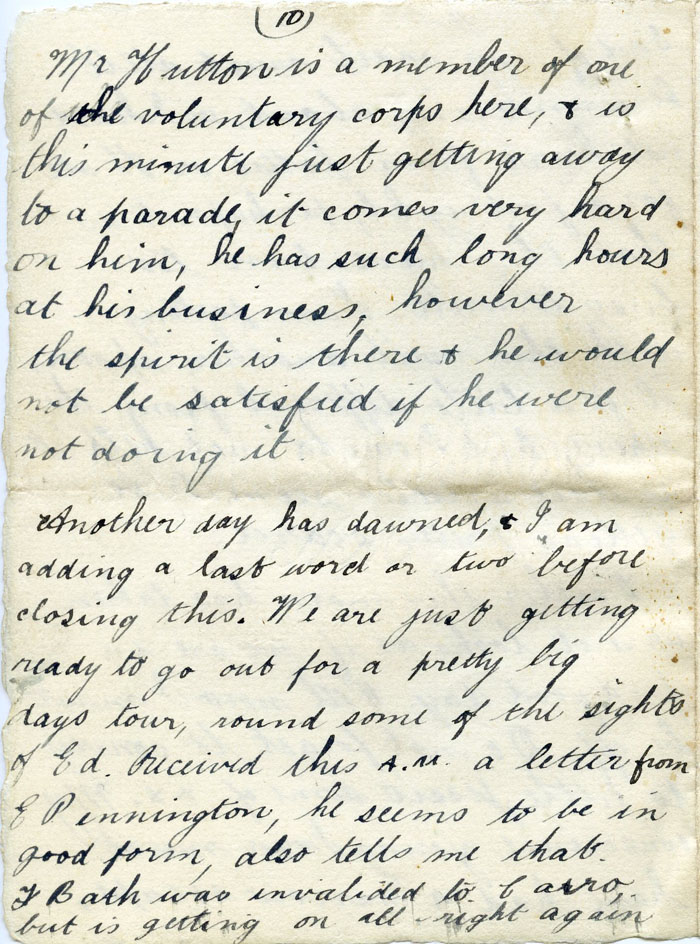 (10)
Mr Hutton is a member of one
of the voluntary corps here, & is
this minute just getting away
to a parade, it comes very hard
on him, he has such long hours
at his business, however
the spirit is there & he would
not be satisfied if he were
not doing it.
Another day has dawned, & I am
adding a last word or two before
closing this. We are just getting
ready to go out for a pretty big
days tour, round some of the sights
of Ed. Received this A.M. a letter from
E Pennington, he seems to be in
good form, also tells me that.
Bath was invalided to Cairo,
but is getting on all right again